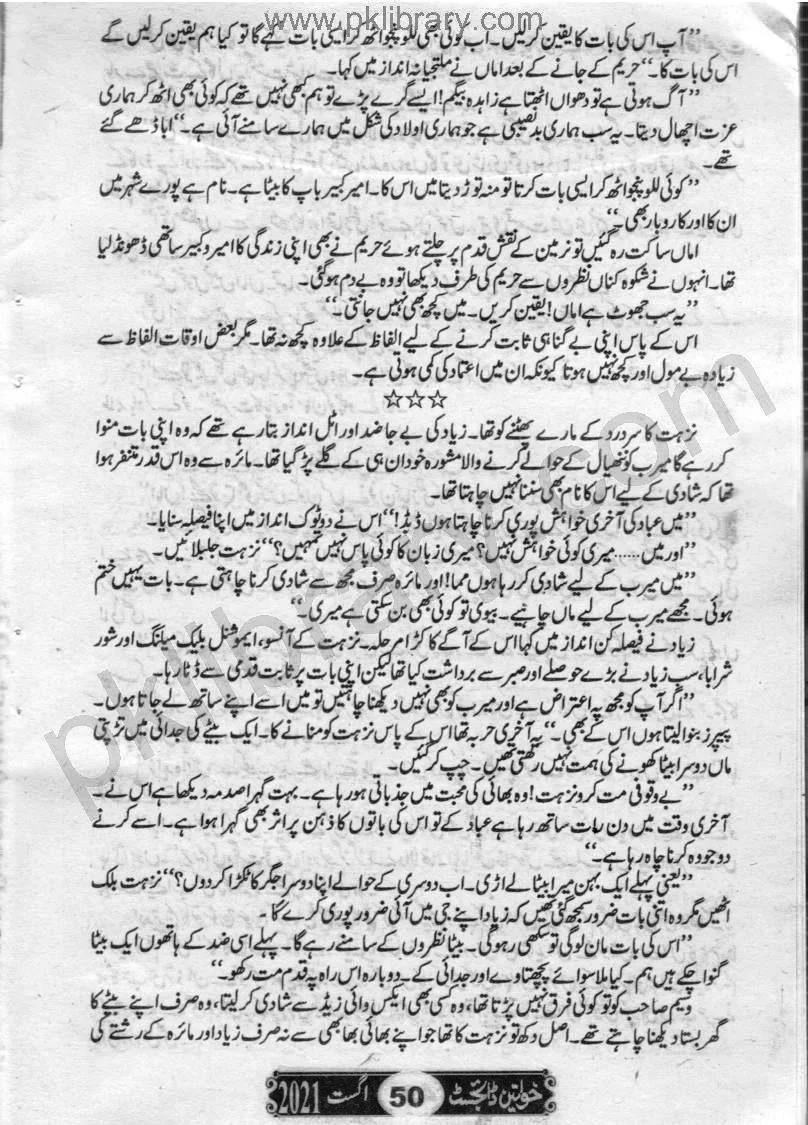 www.pklibrary.com
’’آپ اس کی بات کا یقین کر لیں۔ اب کوئی بھی للو پنجو اٹھ کر ایسی بات کہے گا تو کیا ہم یقین کر لیں گے
اس کی بات کا۔‘‘ حریم کے جانے کے بعد اماں نے ملتجیانہ انداز میں کہا۔
’’آگ ہوتی ہے تو دھواں اٹھتا ہے زاہدہ بیگم! ایسے گرے پڑے تو ہم کبھی نہیں تھے کہ کوئی بھی اٹھ کر ہماری
عزت اچھال دیتا۔ یہ سب ہماری بدنصیبی ہے جو ہماری اولاد کی شکل میں ہمارے سامنے آئی ہے۔‘‘ ابا ڈھے گئے
تھے۔
’’کوئی للو پنجو اٹھ کر ایسی بات کرتا تو منہ توڑ دیتا میں اس کا۔ امیر کبیر باپ کا بیٹا ہے۔ نام ہے پورے شہر میں
ان کا اور کاروبار بھی۔‘‘
اماں ساکت رہ گئیں تو نرمین کے نقش قدم پر چلتے ہوئے حریم نے بھی اپنی زندگی کا امیر و کبیر ساتھی ڈھونڈ لیا
تھا۔ انہوں نے شکوہ کناں نظروں سے حریم کی طرف دیکھا تو وہ بے دم ہو گئی۔
’’یہ سب جھوٹ ہے اماں! یقین کریں۔ میں کچھ بھی نہیں جانتی۔‘‘
اس کے پاس اپنی بے گناہی ثابت کرنے کے لیے الفاظ کے علاوہ کچھ نہ تھا۔ مگر بعض اوقات الفاظ سے
زیادہ بے مول اور کچھ نہیں ہوتا کیونکہ ان میں اعتماد کی کمی ہوتی ہے۔
☆☆☆
نزہت کا سر درد کے مارے پھٹنے کو تھا۔ زیاد کی بے جا ضد اور اٹل انداز بتا رہے تھے کہ وہ اپنی بات منوا
کر رہے گا میرب کو ننھیال کے حوالے کرنے والا مشورہ خود ان ہی کے گلے پڑ گیا تھا۔ مائرہ سے وہ اس قدر متنفر ہوا
تھا کہ شادی کے لیے اس کا نام بھی سننا نہیں چاہتا تھا۔
’’میں عباد کی آخری خواہش پوری کرنا چاہتا ہوں ڈیڈ!‘‘ اس نے دو ٹوک انداز میں اپنا فیصلہ سنایا۔
’’اور میں...... میری کوئی خواہش نہیں؟ میری زبان کا کوئی پاس نہیں تمہیں؟‘‘ نزہت جلبلائیں۔
’’میں میرب کے لیے شادی کر رہا ہوں مما! اور مائرہ صرف مجھ سے شادی کرنا چاہتی ہے۔ بات یہیں ختم
ہوئی۔ مجھے میرب کے لیے ماں چاہیے۔ بیوی تو کوئی بھی بن سکتی ہے میری۔‘‘
زیاد نے فیصلہ کن انداز میں کہا اس کے آگے کا کڑا مرحلہ۔ نزہت کے آنسو، ایموشنل بلیک میلنگ اور شور
شرابا، سب زیاد نے بڑے حوصلے اور صبر سے برداشت کیا تھا لیکن اپنی بات پر ثابت قدمی سے ڈٹا رہا۔
’’اگر آپ کو مجھ پہ اعتراض ہے اور میرب کو بھی نہیں دیکھنا چاہتیں تو میں اسے اپنے ساتھ لے جاتا ہوں۔
پیپرز بنوا لیتا ہوں اس کے بھی۔‘‘ یہ آخری حربہ تھا اس کے پاس نزہت کو منانے کا۔ ایک بیٹے کی جدائی میں تڑپتی
ماں دوسرا بیٹا کھونے کی ہمت نہیں رکھتی تھیں۔ چپ کر گئیں۔
’’بے وقوفی مت کرو نزہت! وہ بھائی کی محبت میں جذباتی ہو رہا ہے۔ بہت گہرا صدمہ دیکھا ہے اس نے۔
آخری وقت میں دن رات ساتھ رہا ہے عباد کے تو اس کی باتوں کا ذہن پر اثر بھی گہرا ہوا ہے۔ اسے کرنے
دو جو وہ کرنا چاہ رہا ہے۔‘‘
’’یعنی پہلے ایک بہن میرا بیٹا لے اڑی۔ اب دوسری کے حوالے اپنا دوسرا جگر کا ٹکڑا کر دوں؟‘‘ نزہت بلک
اٹھیں مگر وہ اتنی بات ضرور سمجھ گئی تھیں کہ زیاد اپنے جی میں آئی ضرور پوری کرے گا۔
’’اس کی بات مان لو گی تو سکھی رہو گی۔ بیٹا نظروں کے سامنے رہے گا۔ پہلے اسی ضد کے ہاتھوں ایک بیٹا
گنوا چکے ہیں ہم۔ کیا ملا سوائے پچھتاوے اور جدائی کے۔ دوبارہ اس راہ پہ قدم مت رکھو۔‘‘
وسیم صاحب کو تو کوئی فرق نہیں پڑتا تھا، وہ کسی بھی ایکس وائی زیڈ سے شادی کر لیتا، وہ صرف اپنے بیٹے کا
گھر بستا دیکھنا چاہتے تھے۔ اصل دکھ تو نزہت کا تھا جو اپنے بھائی بھابھی سے نہ صرف زیاد اور مائرہ کے رشتے کی
خواتین ڈائجسٹ 50 اگست 2021
pklibrary.com